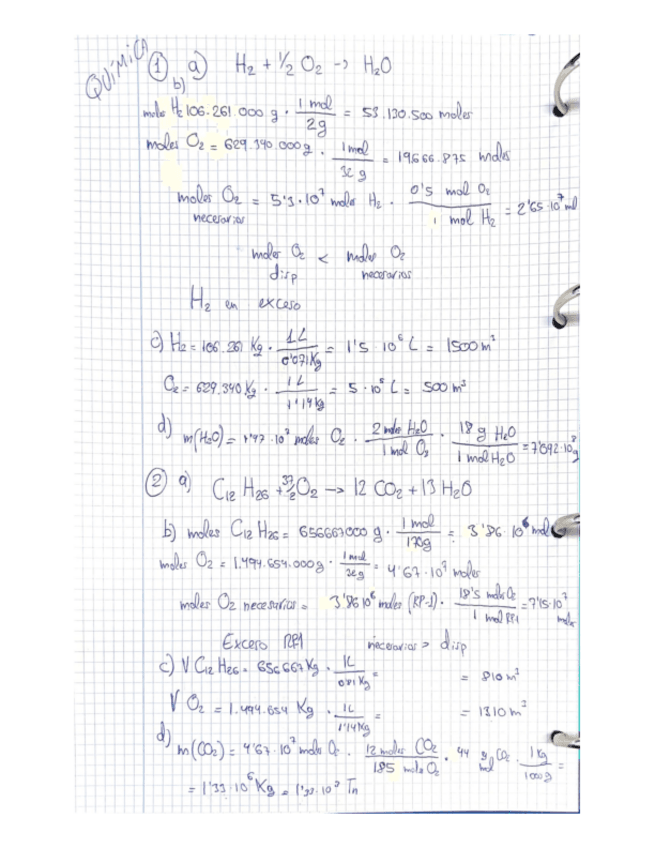 QUÍMICA
① a) H₂ + ½ O₂ → H₂O
b)
moles H₂ 106.261.000 g · 1 mol / 2g = 53.130.500 moles
moles O₂ = 629.340.000 g · 1 mol / 32 g = 19.666.875 moles
moles O₂ necesarios = 5'3·10⁷ moles H₂ · 0'5 mol O₂ / 1 mol H₂ = 2'65·10⁷ mol
moles O₂ disp < moles O₂ necesarios
H₂ en exceso
c) H₂ = 106.261 Kg · 1L / 0'071Kg = 1'5·10⁶ L = 1500 m³
O₂ = 629.340 Kg · 1L / 1'14Kg = 5·10⁵ L = 500 m³
d) m(H₂O) = 1'97·10⁷ moles O₂ · 2 moles H₂O / 1 mol O₂ · 18 g H₂O / 1 mol H₂O = 7'092·10⁸ g
② a) C₁₂H₂₆ + 37/2 O₂ → 12 CO₂ + 13 H₂O
b) moles C₁₂H₂₆ = 656667000 g · 1 mol / 170g = 3'86·10⁶ mol
moles O₂ = 1.494.654.000g · 1 mol / 32g = 4'67·10⁷ moles
moles O₂ necesarios = 3'86·10⁶ moles (RP-1) · 18'5 moles O₂ / 1 mol RP1 = 7'15·10⁷ moles
Exceso RP1 necesarios > disp
c) V C₁₂H₂₆ = 656667 Kg · 1L / 0'81 Kg = = 810 m³
V O₂ = 1.494.654 Kg · 1L / 1'14Kg = = 1310 m³
d) m(CO₂) = 4'67·10⁷ moles O₂ · 12 moles CO₂ / 18'5 moles O₂ · 44 g CO₂ / mol · 1 Kg / 1000 g =
= 1'33·10⁶ Kg = 1'33·10³ Tn